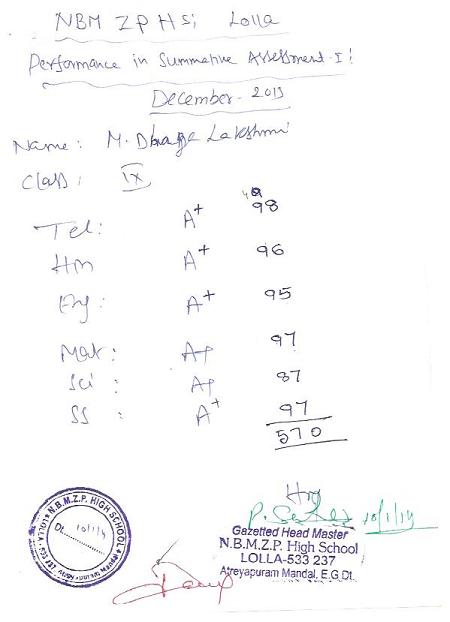 NBM ZP HS; Lolla
Performance in Summative Assessment-I;
December-2013
Name: M. Durga Lakshmi
Class: IX
Tel: A+ 98
Hin A+ 96
Eng: A+ 95
Mat: A+ 97
Sci: A+ 87
SS: A+ 97
570
Hm
10/1/14
Gazetted Head Master
N.B.M.Z.P. High School
LOLLA-533 237
Atreyapuram Mandal, E.G.Dt.
N.B.M.Z.P. HIGH SCHOOL
Dt. 10/1/14